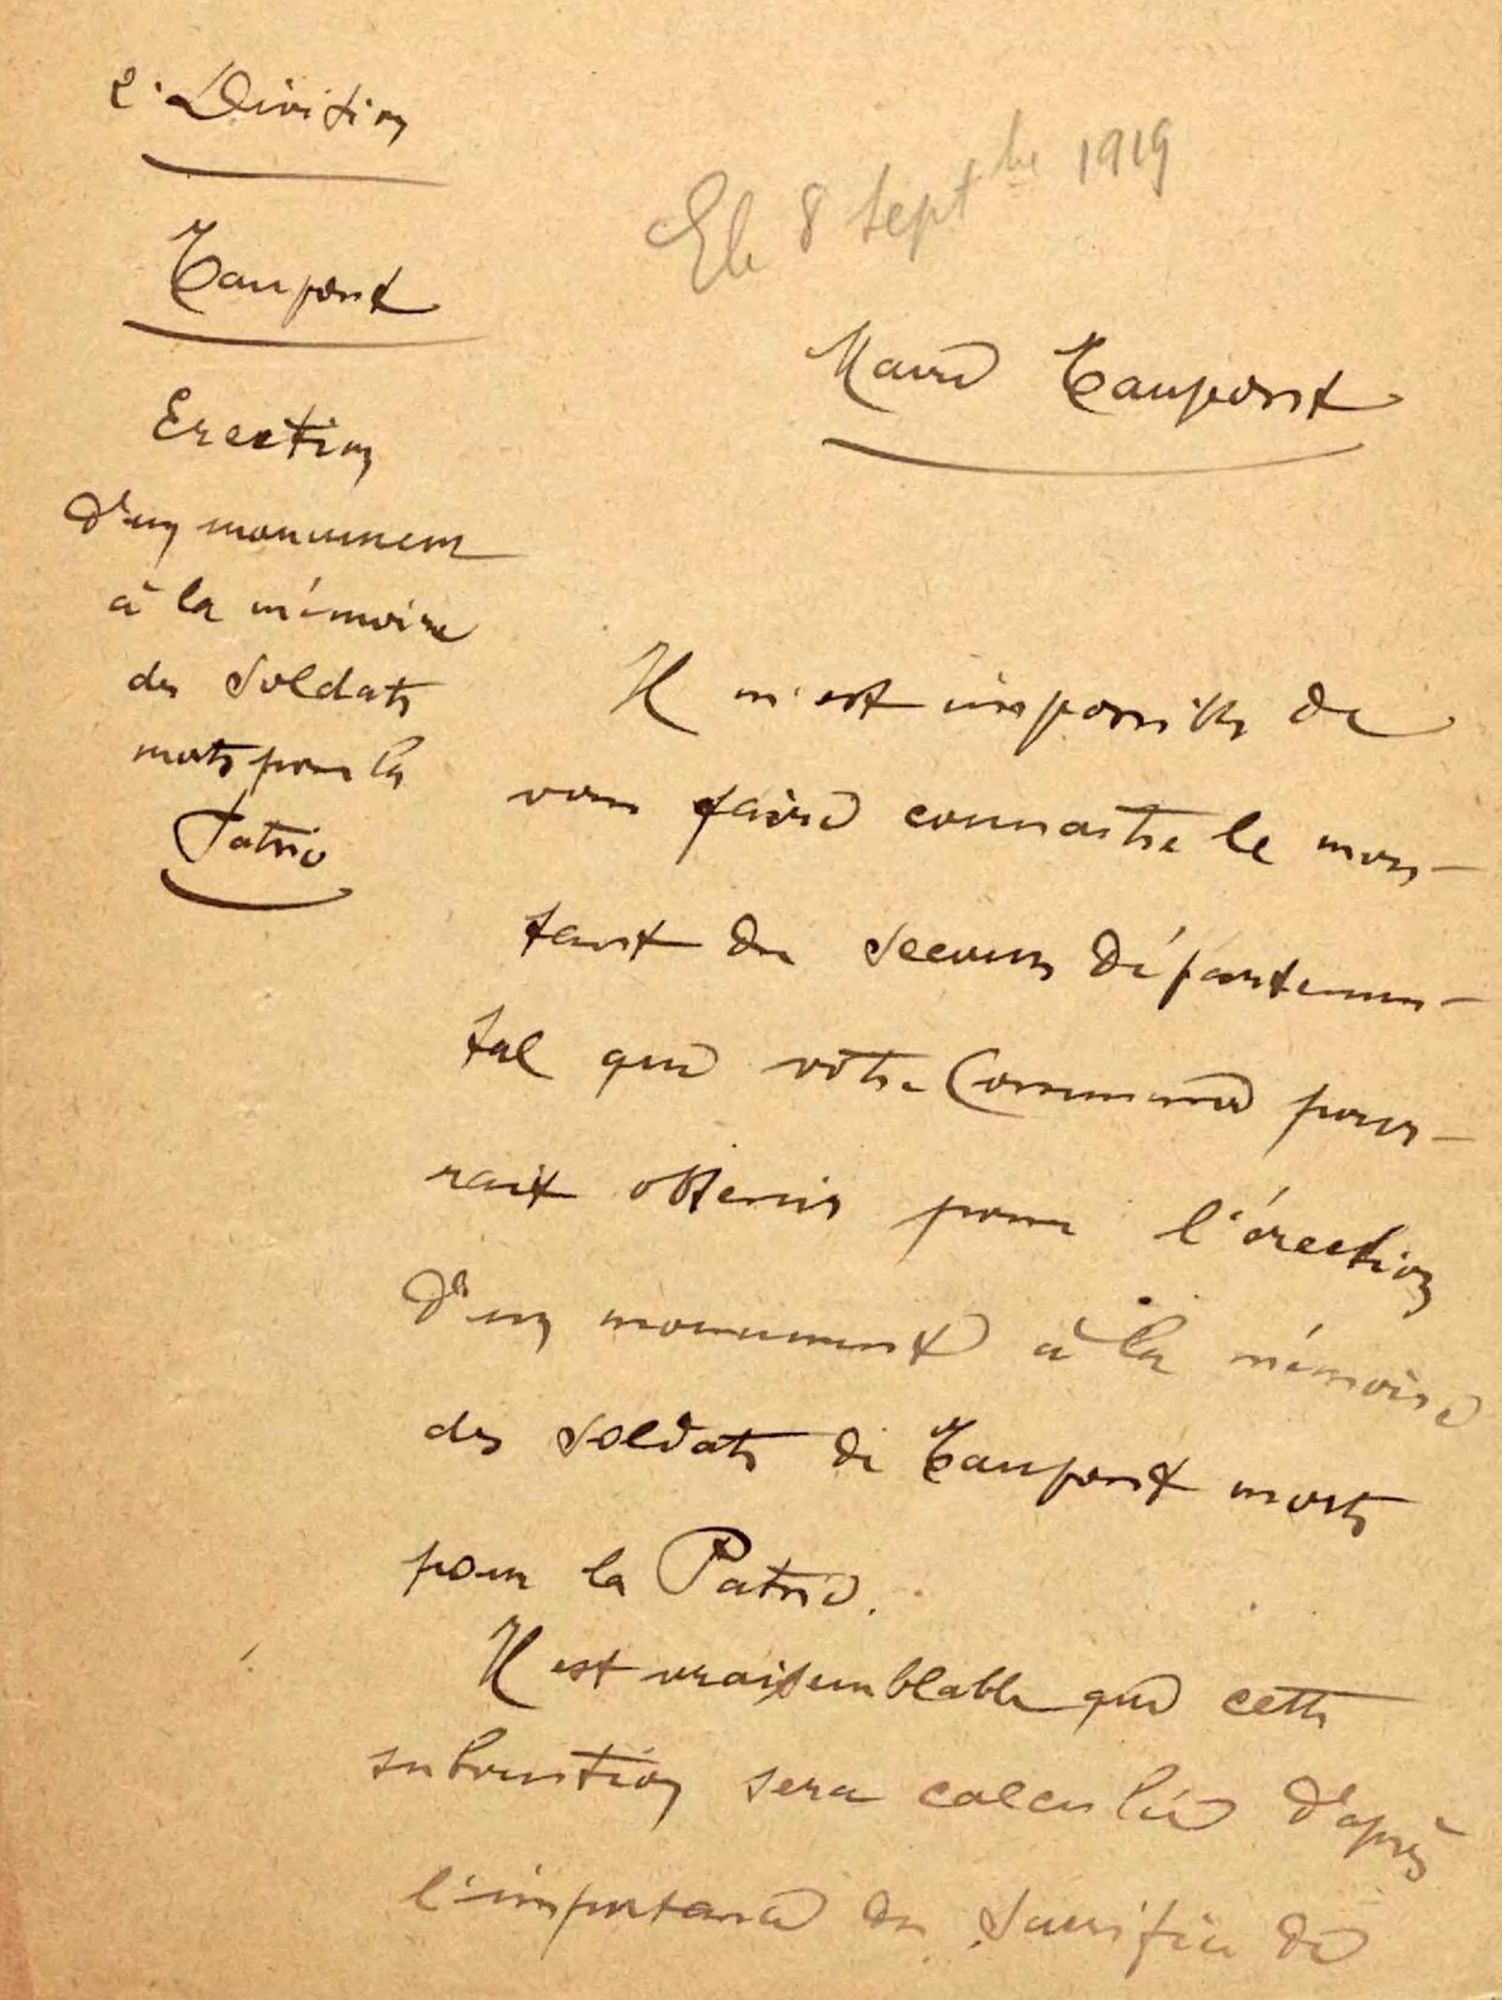 2e Division
Taupont
Erection
d'un monument
à la mémoire
des soldats
morts pour la
Patrie
8 Septbre 1919
Maire Taupont
Il m'est impossible de
vous faire connaitre le mon-
tant du secours départemen-
tal que votre Commune pour-
rait obtenir pour l'érection
d'un monument à la mémoire
des soldats de Taupont morts
pour la Patrie.
Il est vraisemblable que cette
subvention sera calculée d'après
l'importance du sacrifice de